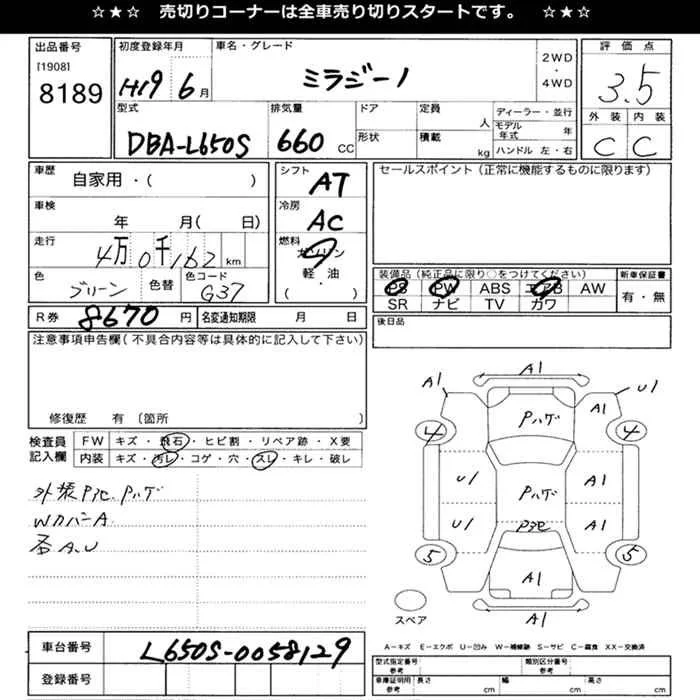 ☆★☆ 売切りコーナーは全車売り切りスタートです。 ☆★☆
出品番号
[1908]
8189
初度登録年月
H19 6月
車名・グレード
ミラジーノ
2WD
・
4WD
評価点
3.5
外装 内装
C C
型式
DBA-L650S
排気量
660 CC
ドア
形状
定員 人
積載 kg
ディーラー・並行
モデル年式 年
ハンドル 左・右
車歴
自家用・( )
車検
年 月( 日)
走行
4万0千162 km
色
グリーン
色替
色コード
G37
シフト
AT
冷房
AC
燃料
ガソリン
軽・油
( )
セールスポイント(正常に機能するものに限ります)
装備品(純正品に限り○をつけてください)
PS PW ABS エアB AW
SR ナビ TV カワ
新車保証書
有・無
後日品
R券 8670 円
名変通知期限 月 日
注意事項申告欄(不具合内容等は具体的に記入して下さい)
修復歴 有 〔箇所 〕
検査員
記入欄
FW キズ・飛石・ヒビ割・リペア跡・X要
内装 キズ・汚レ・コゲ・穴・スレ・キレ・破レ
外装P泡、Pハゲ
WカバーA
各A.U
A1
A1
U1
Pハゲ
A1
4
4
U1
Pハゲ
A1
U1
P泡
A1
5
5
A1
A1
スペア
A-キズ E-エクボ U-凹み W-補修跡 S-サビ C-腐食 XX-交換済
車台番号
L650S-0058129
登録番号
型式指定番号
参考
類別区分番号
参考
車庫証明用
参考
長さ cm
幅 cm
高さ cm